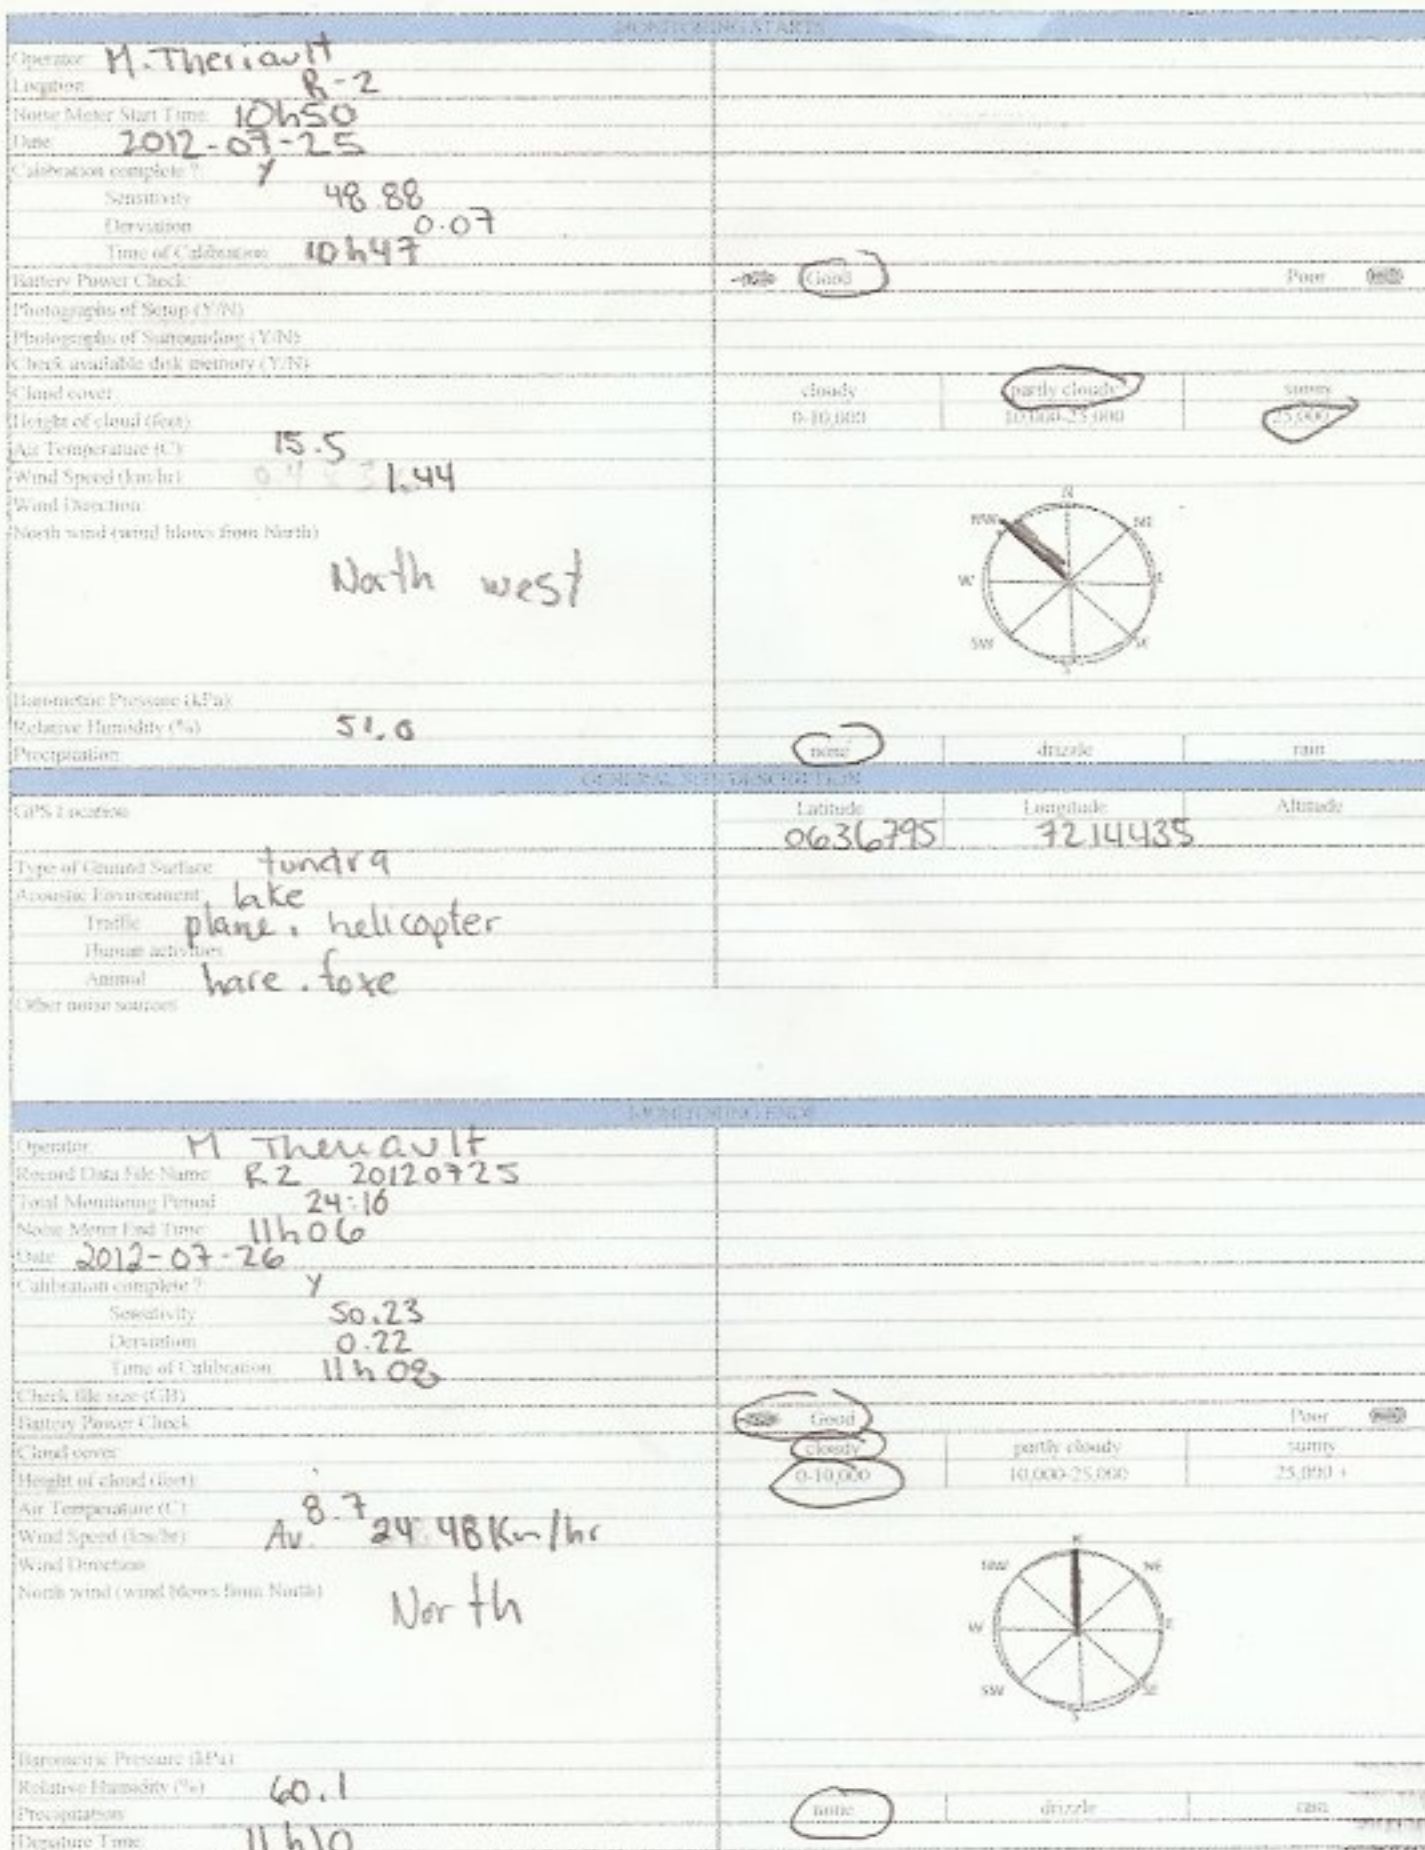 MONITORING STARTS
Operator: M. Theriault
Location: R-2
Noise Meter Start Time: 10h50
Date: 2012-07-25
Calibration complete ?: Y
Sensitivity 48.88
Derviation 0.07
Time of Calibration 10h47
Battery Power Check: Good Poor
Photographs of Setup (Y/N)
Photographs of Surrounding (Y/N)
Check available disk memory (Y/N)
Cloud cover: cloudy partly cloudy sunny
Height of cloud (feet): 0-10,000 10,000-25,000 25,000
Air Temperature (C): 15.5
Wind Speed (km/hr): 1.44
Wind Direction:
North wind (wind blows from North)
North west
N
NW NE
W E
SW SE
S
Barometric Pressure (kPa):
Relative Humidity (%) 51.0
Precipitation: none drizzle rain
GENERAL SITE DESCRIPTION
GPS Location Latitude Longitude Altitude
0636795 7214435
Type of Ground Surface: tundra
Acoustic Environment: lake
Traffic plane. helicopter
Human activities
Animal hare. foxe
Other noise sources
MONITORING ENDS
Operator: M Theriault
Record Data File Name: R2 20120725
Total Monitoring Period 24:16
Noise Meter End Time: 11h06
Date: 2012-07-26
Calibration complete ? Y
Sensitivity 50.23
Derviation 0.22
Time of Calibration 11h08
Check file size (GB)
Battery Power Check Good Poor
Cloud cover cloudy partly cloudy sunny
Height of cloud (feet): 0-10,000 10,000-25,000 25,000 +
Air Temperature (C) 8.7
Wind Speed (km/hr) Av. 24.48 Km/hr
Wind Direction
North wind (wind blows from North)
North
N
NW NE
W E
SW SE
S
Barometric Pressure (kPa)
Relative Humidity (%) 60.1
Precipitation none drizzle rain
Depature Time: 11h10